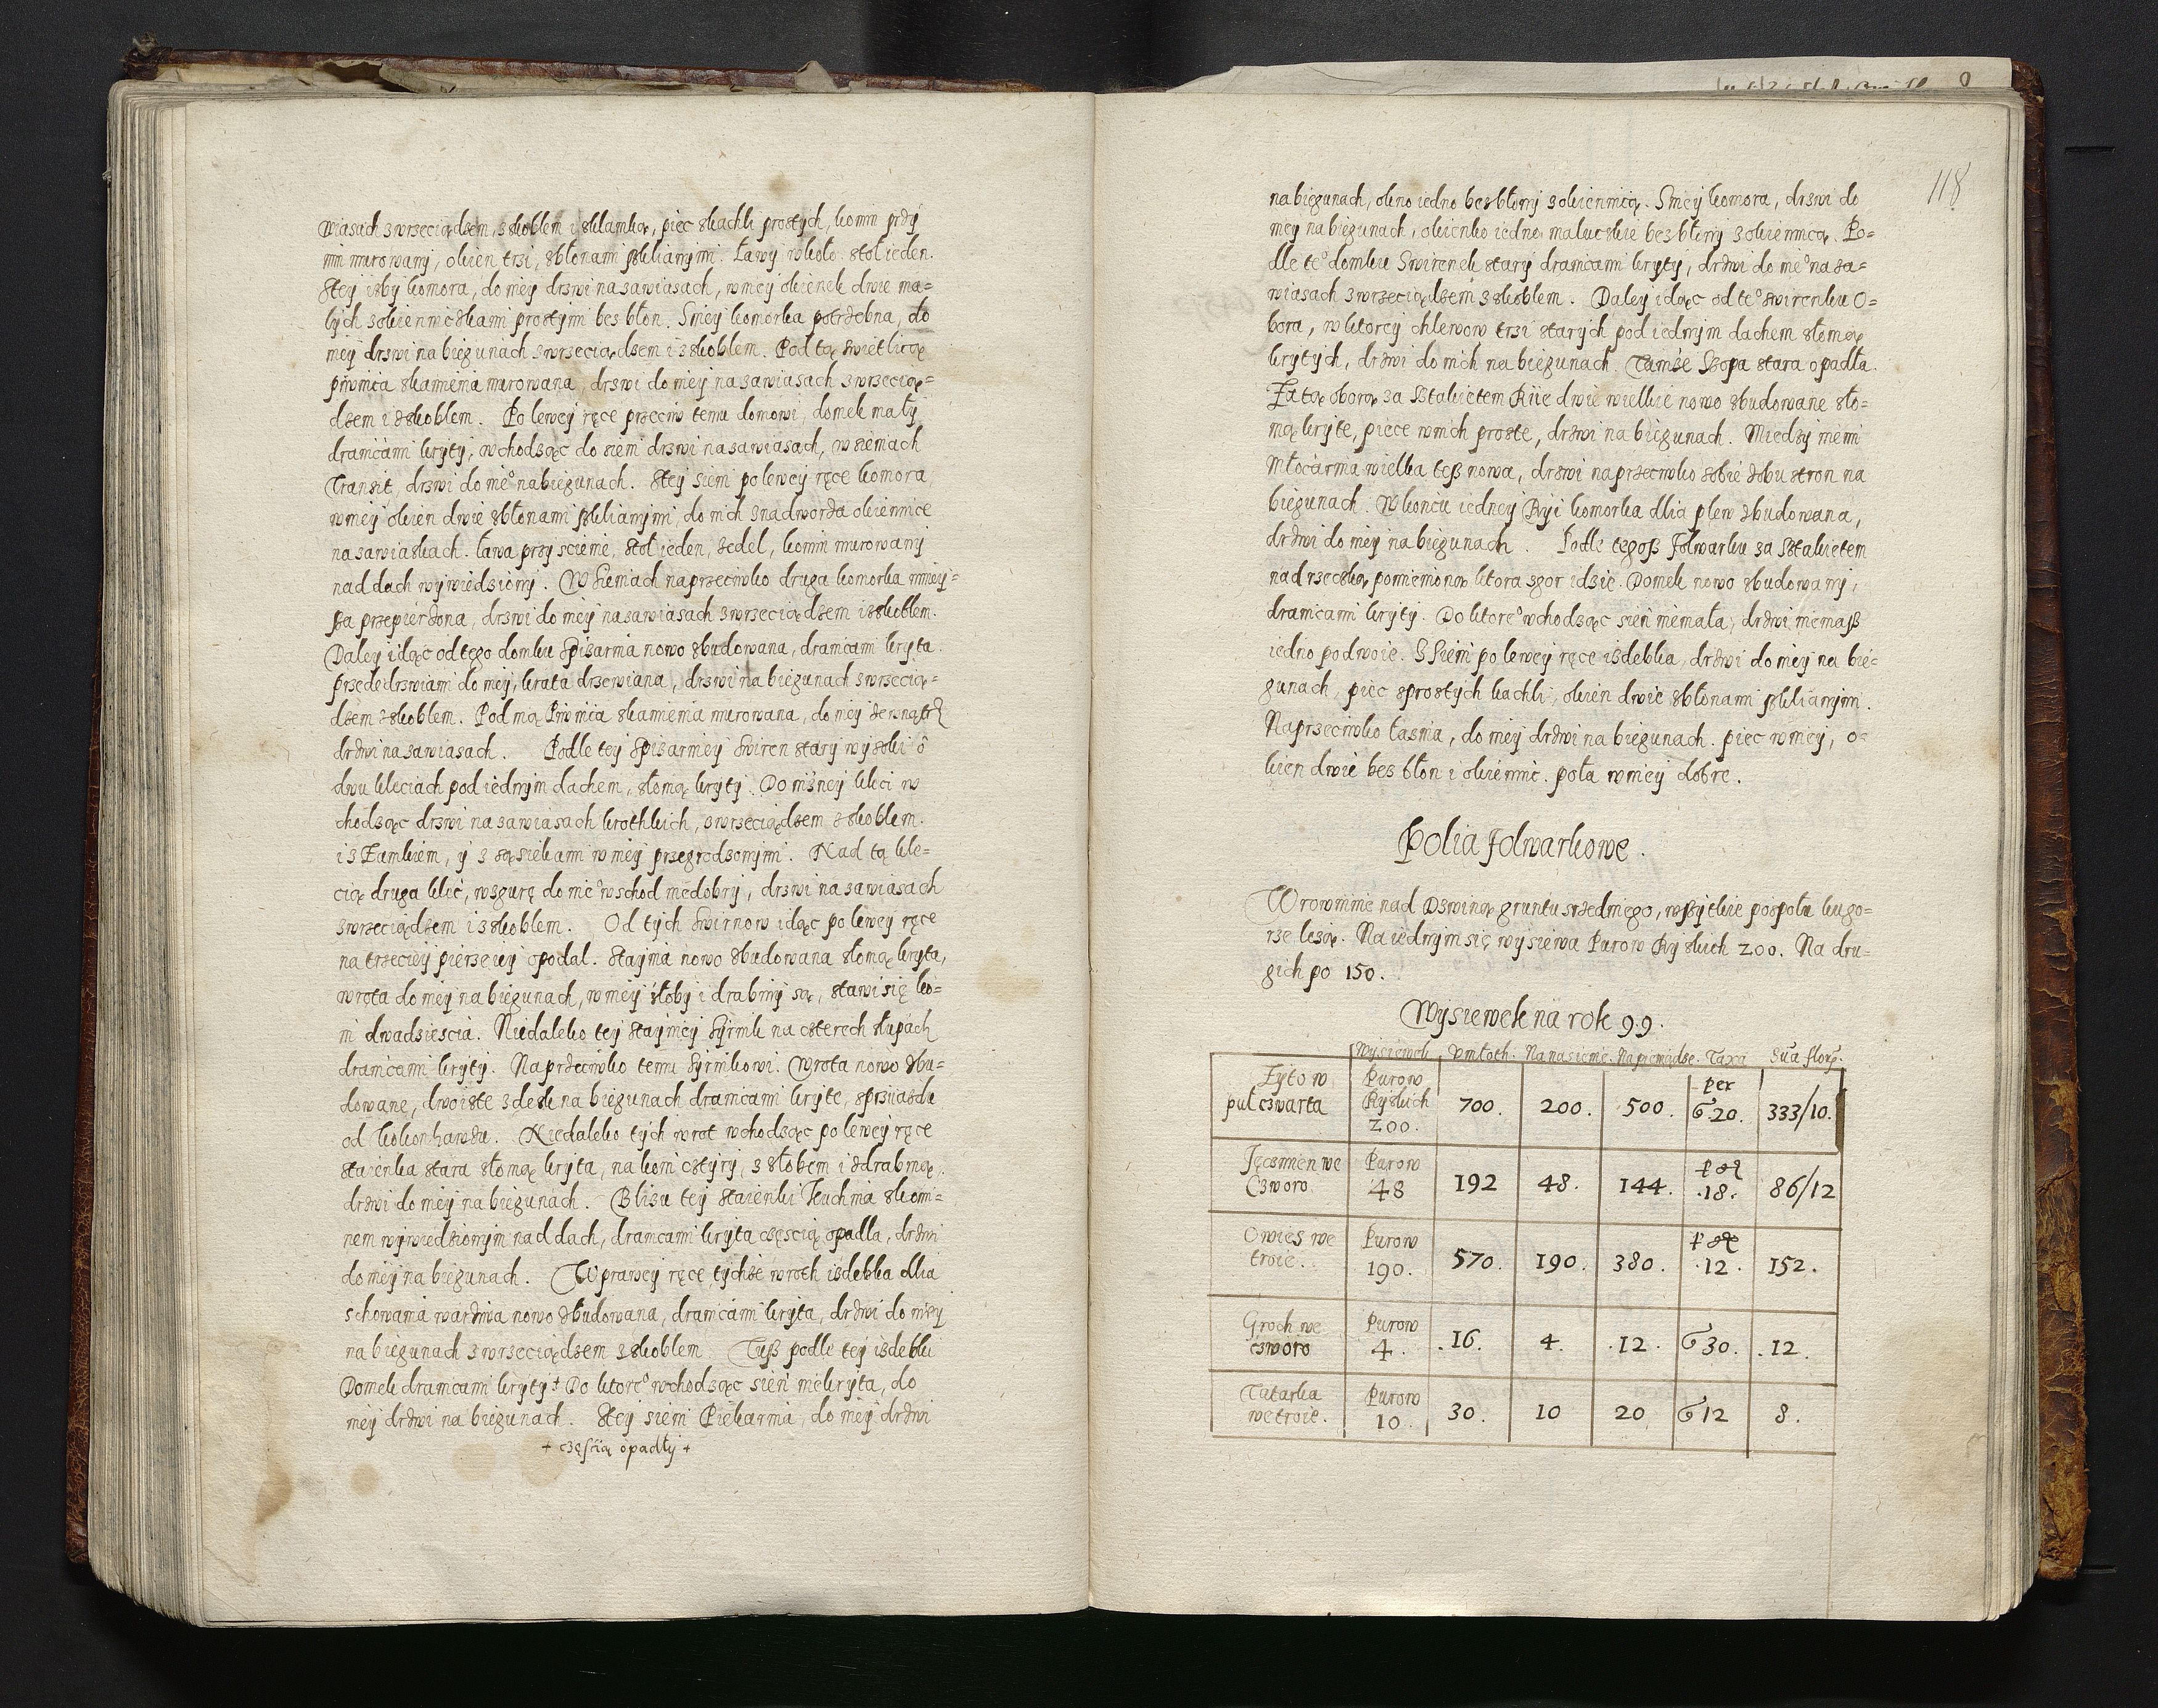 wiasach z wrzeciądzem, z skoblem i sklamką, piec z kachli prostych, komin przÿ
min murowanÿ, okien trzi, z błonami szklianÿmi. Ławÿ wkoło. stoł ieden.
Z teÿ izbÿ komora, do nieÿ drzwi na zawiasach, w nieÿ okienek dwie ma=
łÿch z okieniczkami prostÿmi bez błon. Z nieÿ komorka potrzebna, do
nieÿ drzwi na biegunach z wrzeciądzem i z skoblem. Pod tą swietlicą
piwnica z kamienia murowana, drzwi do nieÿ na zawiasach z wrzecią=
dzem i z skoblem. Po leweÿ ręce przeciw temu domowi, domek małÿ
dranicami krÿtÿ, wchodząc do sieni drzwi na zawiasach, w sieniach
Transit, drzwi do nie⁰ na biegunach. Z teÿ sieni po leweÿ ręce komora,
w nieÿ okien dwie z błonami szklianÿmi, do nich z nadworza okiennice
na zawiaskach. Ława przÿ scienie, stoł ieden, zedel, komin murowanÿ
nad dach wÿwiedzionÿ. W sieniach naprzeciwko druga komorka mnieÿ=
sza przepierzona, drzwi do nieÿ na zawiasach z wrzeciądzem i z skoblem.
Daleÿ idąc od tego domku Spizarnia nowo zbudowana, dranicami krÿta.
przede drzwiami do nieÿ, krata drzewiana, drzwi na biegunach z wrzecią=
dzem z skoblem. Pod nią Piwnica z kamienia murowana, do nieÿ zewnątrz
drzwi na zawiasach. Podle teÿ Spizarnieÿ Swiren starÿ wÿsoki o
dwu kleciach pod iednÿm dachem, słomą krÿtÿ. Do nizneÿ kleci w
chodząc drzwi na zawiasach krothkich, z wrzeciądzem z skoblem.
i z Zamkiem, ÿ z sąsiekami w nieÿ przegrodzonÿmi. Nad tą kle=
cią druga kliec, wzgurę do nie⁰ wschod niedobrÿ, drzwi na zawiasach
z wrzeciądzem i z skoblem. Od tÿch Swirnow idąc po leweÿ ręce
na trzecieÿ pierzeiÿ opodal. Staÿnia nowo zbudowana słomą krÿta,
wrota do nieÿ na biegunach, w nieÿ żłobÿ i drabinÿ są, stawi się ko=
ni dwadziescia. Niedaleko teÿ Staÿnieÿ Sÿrnik na czterech słupach
dranicami krÿtÿ. Naprzeciwko temu Sÿrnikowi. Wrota nowo zbu=
dowane, dwoiste z desk na biegunach dranicami krÿte, z prziiazdu
od Kokonhawzu. Niedaleko tÿch wrot wchodząc po leweÿ ręce
staienka stara słomą krÿta, na koni cztÿrÿ, z złobem i z drabiną.
drzwi do nieÿ na biegunach. Blizu teÿ staienki Kuchnia z komi=
nem wÿwiedzionÿm nad dach, dranicami krÿta częscią opadła, drzwi
do nieÿ na biegunach. W praweÿ ręcę tÿchże wroth izdebka dlia
schowania warziwa nowo zbudowana, dranicami krÿta, drzwi do nieÿ
na biegunach z wrzeciądzem z skoblem. Tusz podle teÿ izdebki
Domek dranicami krÿtÿ + Do ktore⁰ wchodząc sień niekrÿta, do
nieÿ drzwi na biegunach. Z teÿ sieni Piekarnia, do nieÿ drzwi
+ częścią opadłÿ +
118
na biegunach, okno iedno bez błonÿ z okiennicą. Z nieÿ komora, drzwi do
nieÿ na biegunach, okienko iedno maluczkie bez błonÿ z okiennicą. Po=
dle te⁰ domku Swirenek starÿ dranicami krÿtÿ, drzwi do nie⁰ na za=
wiasach z wrzeciądzem z skoblem. Daleÿ idąc od te⁰ swirenku O=
bora, w ktoreÿ chlewow trzi starÿch pod iednÿm dachem słomą
krÿtÿch, drzwi do nich na biegunach. Tamże Szopa stara opadła.
Za tą oborą za Stakietem Riie dwie wielkie nowo zbudowane sło=
mą krÿte, piece w nich proste, drzwi na biegunach. Miedzÿ niemi
Młocarnia wielka tesz nowa, drzwi naprzeciwko sobie z obu stron na
biegunach. W koncu iedneÿ Rÿi komorka dlia plew zbudowana,
drzwi do nieÿ na biegunach. Podle tegosz folwarku za Stakietem
nad rzeczką pomienioną ktora z gor idzie. Domek nowo zbudowanÿ,
dranicami krÿtÿ. Do ktore⁰ wchodząc sień niemała, drzwi niemasz
iedno podwoie. Z sieni po leweÿ ręce izdebka, drzwi do nieÿ na bie=
gunach, piec z prostÿch kachli, okien dwie z błonami szklianÿmi.
Naprzeciwko Łaznia, do nieÿ drzwi na biegunach. piec w nieÿ, o=
kien dwie bez błon i okiennic. poła w nieÿ dobre.
Polia folwarkowe.
W rowninie nad Dzwiną gruntu srzedniego, wszÿtkie pospołu ku go=
rze leżą. Na iednÿm się wÿsiewa Purow Rÿskich 200. Na dru=
gich po 150.
Wysiewek na rok 99.
Wysiewek. Vmłoth. Na nasienie. Na pieniądze. Taxa Suã flor.
Zyto w puł czwarta Purow Ryskich 200. 700. 200. 500. per G 20. 333/10.
Jęczmien we Czworo Purow 48 192 48. 144. 18. 86/12
Owies we troie. Purow 190. 570. 190. 380. 12. 152.
Groch we czworo Purow 4. 16. 4. 12. G 30. 12.
Tatarka we troie. Purow 10. 30. 10 20 G 12 8.